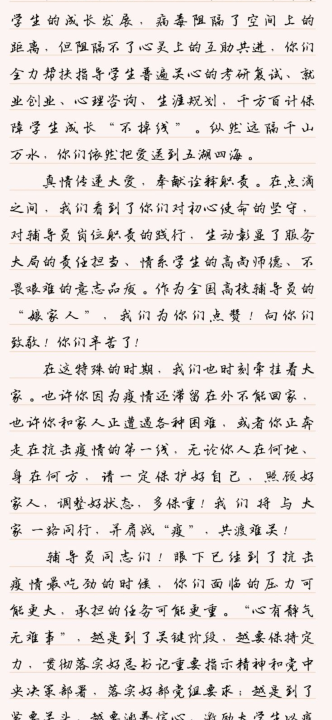 学生的成长发展，病毒阻隔了空间上的
距离，但阻隔不了心灵上的互助共进，你们
全力帮扶指导学生普遍关心的考研复试、就
业创业、心理咨询、生涯规划，千方百计保
障学生成长“不掉线”。纵然远隔千山
万水，你们依然把爱送到五湖四海。
真情传递大爱，奉献诠释职责。在点滴
之间，我们看到了你们对初心使命的坚守，
对辅导员岗位职责的践行，生动彰显了服务
大局的责任担当、情系学生的高尚师德、不
畏艰难的意志品质。作为全国高校辅导员的
“娘家人”，我们为你们点赞！向你们
致敬！你们辛苦了！
在这特殊的时期，我们也时刻牵挂着大
家。也许你因为疫情还滞留在外不能回家，
也许你和家人正遭遇各种困难，或者你正奔
走在抗击疫情的第一线，无论你人在何地、
身在何方，请一定保护好自己，照顾好
家人，调整好状态，多保重！我们将与大
家一路同行，并肩战“疫”，共渡难关！
辅导员同志们！眼下已经到了抗击
疫情最吃劲的时候，你们面临的压力可
能更大，承担的任务可能更重。“心有静气
无难事”，越是到了关键阶段，越要保持定
力，贯彻落实好总书记重要指示精神和党中
央决策部署，落实好部党组要求；越是到了
紧要关头，越要涵养信心，激励大学生以疫